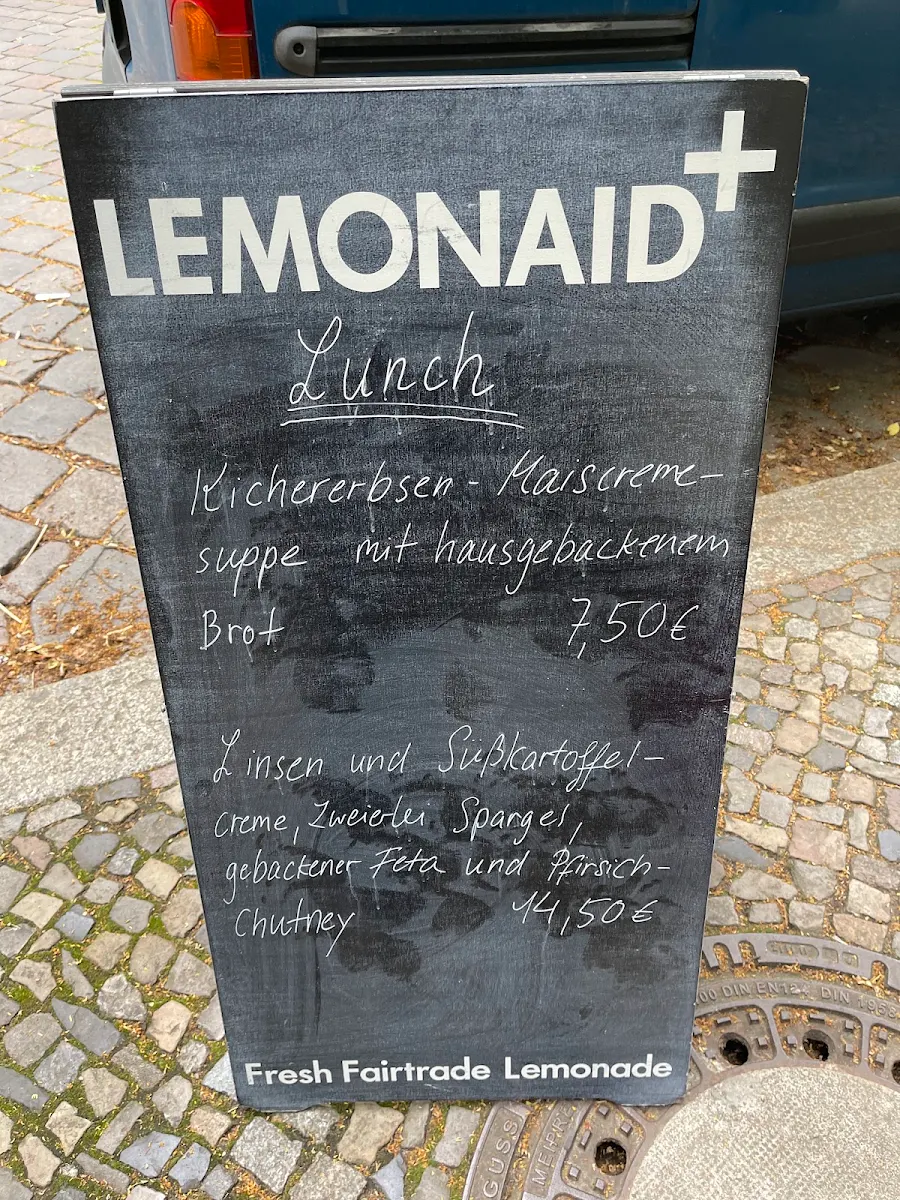 LEMONAID+
Lunch
Kichererbsen - Maiscreme-
suppe mit hausgebackenem
Brot 7,50€
Linsen und Süßkartoffel-
creme, Zweierlei Spargel,
gebackener Feta und Pfirsich-
Chutney 14,50€
Fresh Fairtrade Lemonade
DIN EN 124 DIN 1958
GUSS